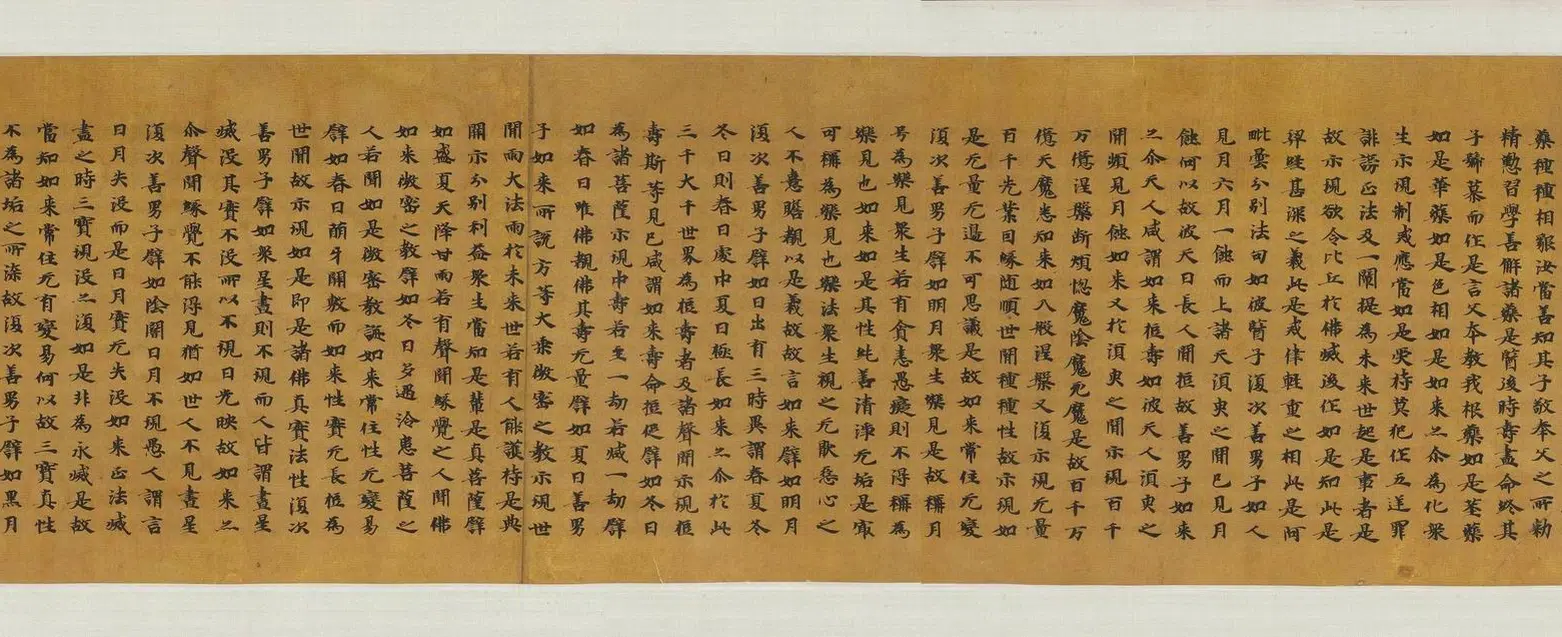 藥種種相貌汝當善知其子敬奉父之所勅
精懃習學善解諸藥是醫後時壽盡命終其
子歸慕而作是言父本教我根藥如是莖藥
如是華藥如是色相如是如来亦尒為化衆
生示現制戒應當如是受持莫犯作五逆罪
誹謗正法及一闡提為未来世起是事者是
故示現欲令比丘於佛滅後作如是知此是
契經甚深之義此是戒律輕重之相此是阿
毗曇分別法句如彼醫子復次善男子如人
見月六月一蝕而上諸天須臾之間已見月
蝕何以故彼天日長人間短故善男子如来
亦尒天人咸謂如来短壽如彼天人須臾之
間頻見月蝕如来又於須臾之間示現百千
万億涅槃断煩惱魔陰魔死魔是故百千万
億天魔悉知来如入般涅槃又復示現无量
百千先業因緣随順世間種種性故示現如
是无量无邊不可思議是故如来常住无變
復次善男子譬如明月衆生樂見是故稱月
号為樂見衆生若有貪恚愚癡則不得稱為
樂見也如来如是其性純善清淨无垢是寂
可稱為樂見也樂法衆生視之无猒惡心之
人不憙瞻覩以是義故故言如来譬如明月
復次善男子譬如日出有三時異謂春夏冬
冬日則春日處中夏日極長如来亦尒於此
三千大千世界為短壽者及諸聲聞示現短
壽斯等見已咸謂如来壽命短促譬如冬日
為諸菩薩示現中壽若至一劫若減一劫譬
如春日唯佛覩佛其壽无量譬如夏日善男
子如来所說方等大乗微密之教示現世
間雨大法雨於未来世若有人能護持是典
開示分別利益衆生當知是輩是真菩薩譬
如盛夏天降甘雨若有聲聞緣覺之人聞佛
如来微密之教譬如冬日多遇冷患菩薩之
人若聞如是微密教誨如来常住性无變易
譬如春日萌牙開敷而如来性實无長短為
世間故示現如是即是諸佛真實法性復次
善男子譬如衆星晝則不現而人皆謂晝星
滅没其實不没所以不現日光映故如来亦
尒聲聞緣覺不能得見猶如世人不見晝星
復次善男子譬如陰闇日月不現愚人謂言
日月失没而是日月實无失没如来正法滅
盡之時三寶現没亦復如是非為永滅是故
當知如来常住无有變易何以故三寶真性
不為諸垢之所染故復次善男子譬如黑月